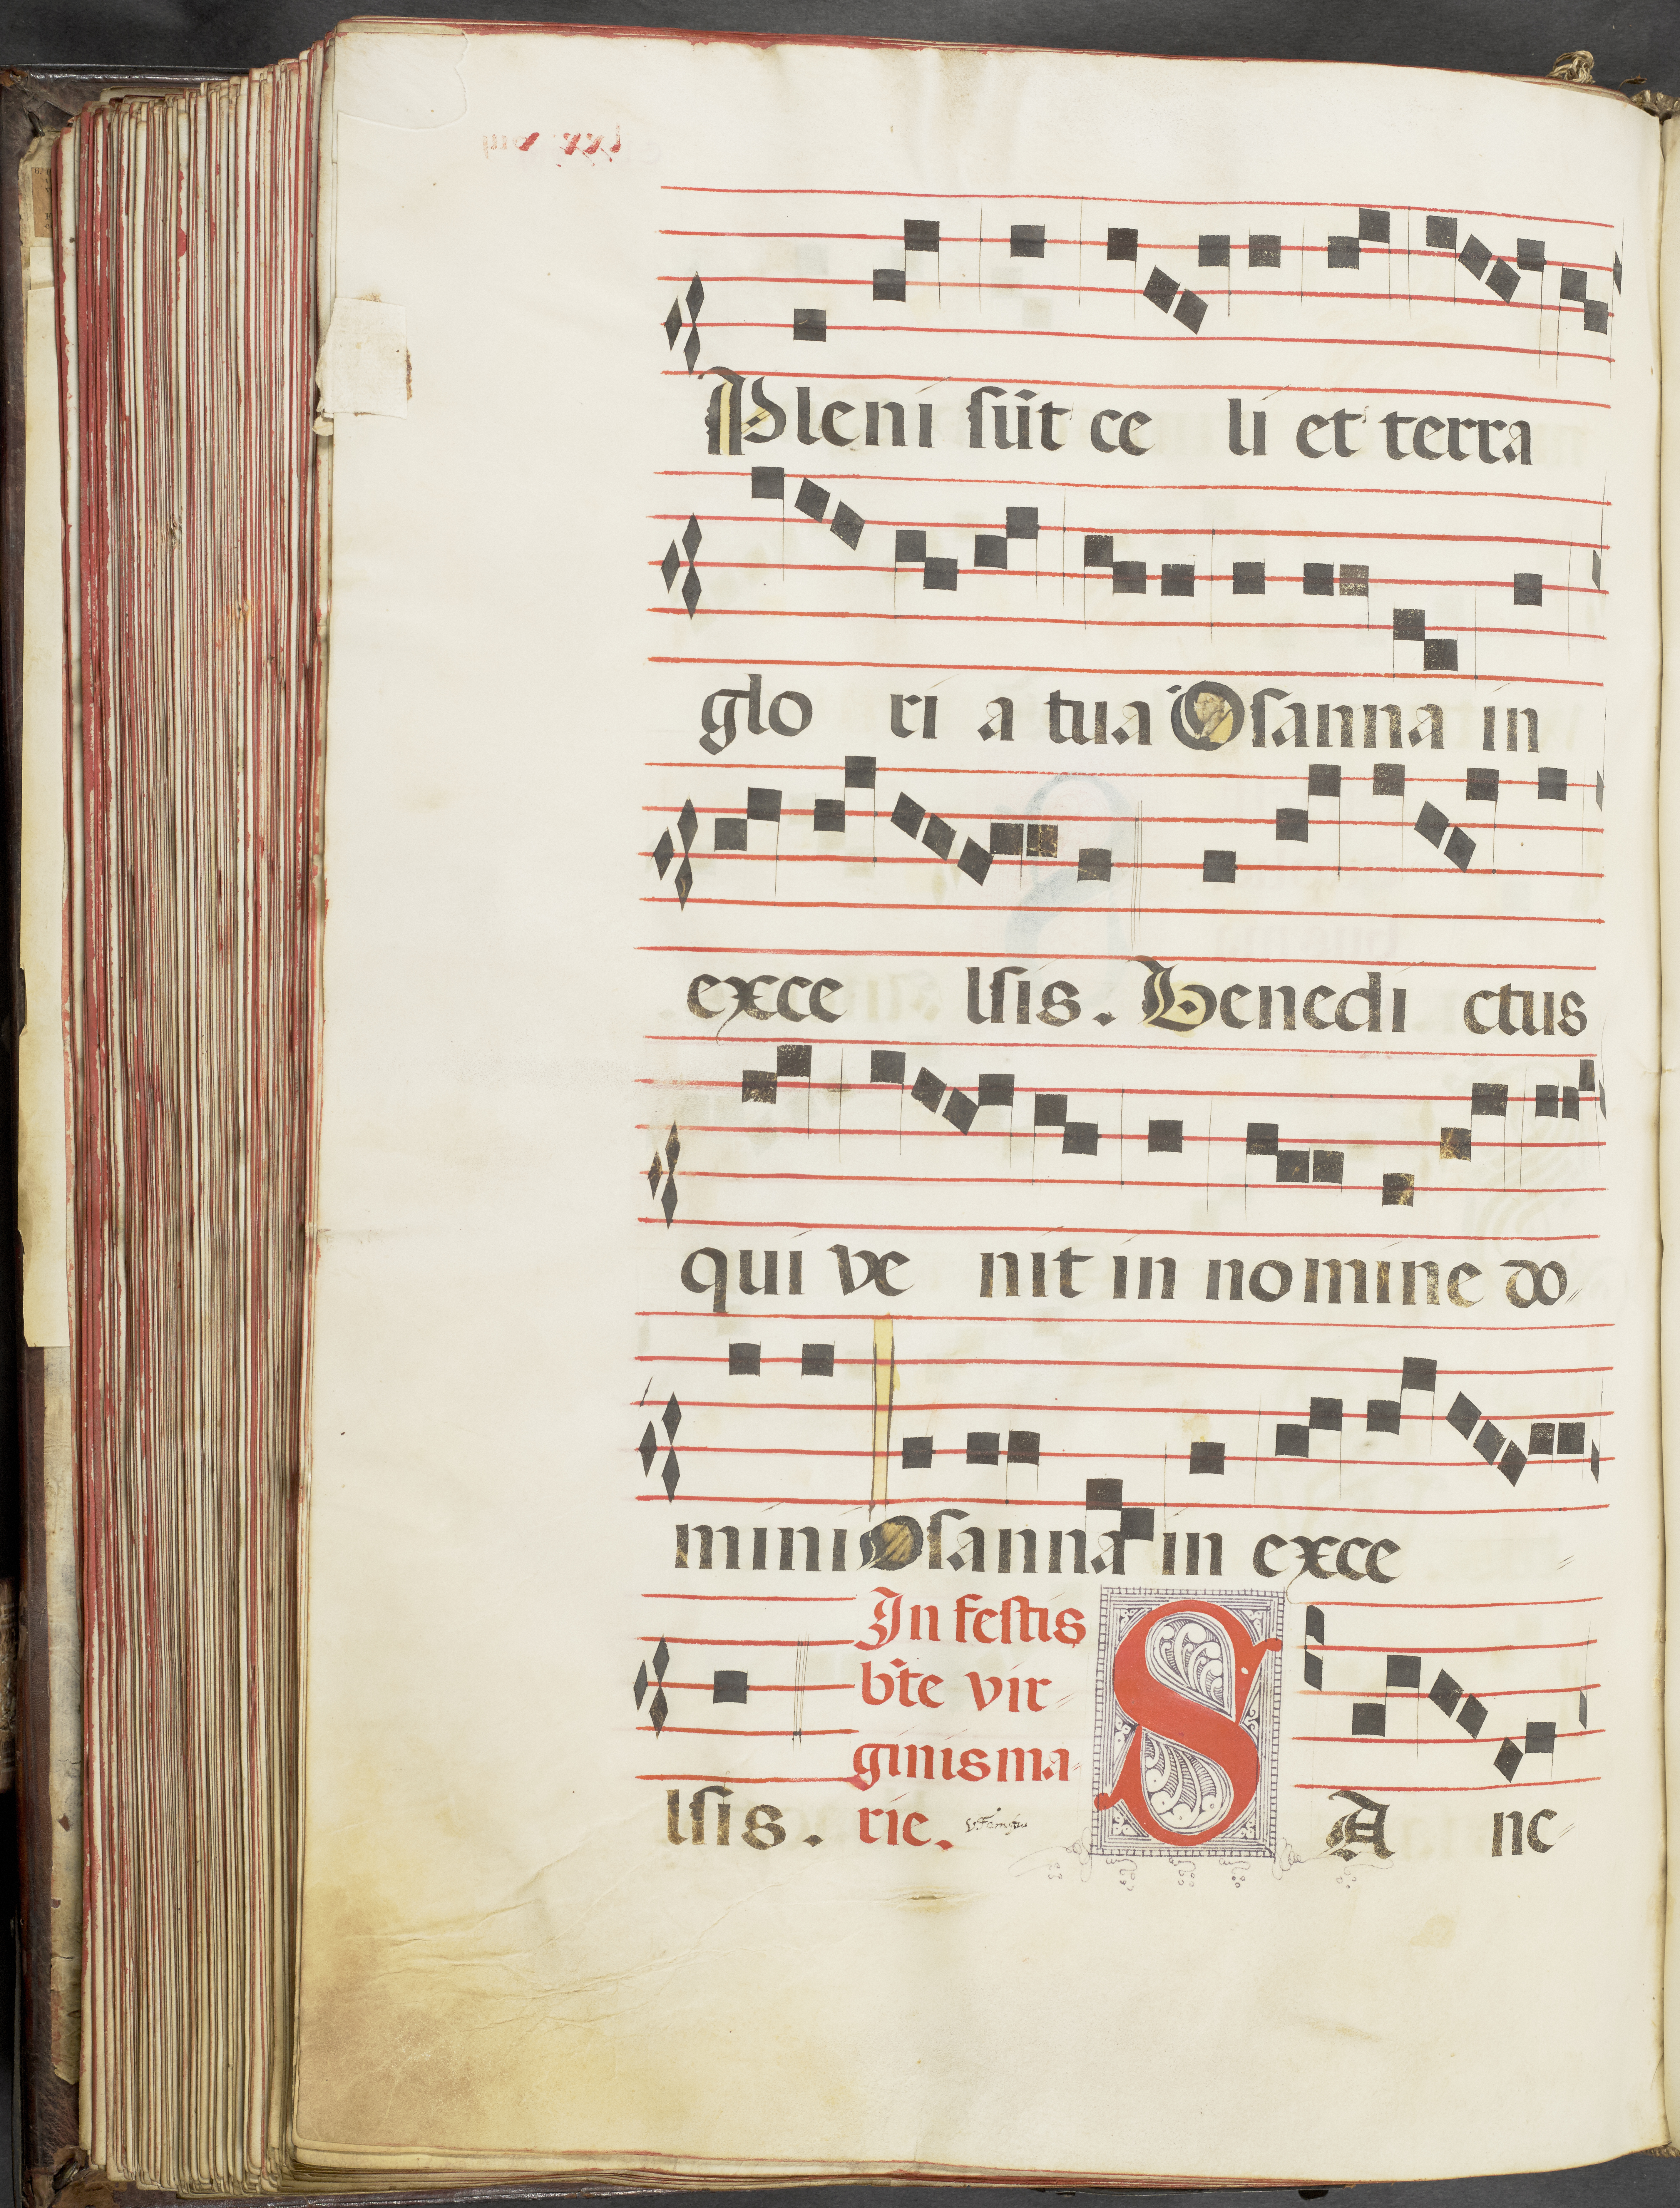 Pleni sūt ce li et terra
glo ri a tua Osanna in
exce lsis. Benedi ctus
qui ve nit in nomine do
mini Osanna in exce
lsis. In festis
bt̄e vir
ginis ma
rie. SA nc